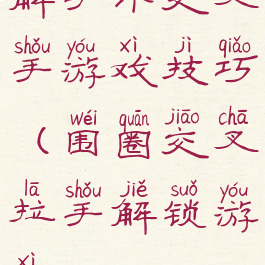 shǒu yóu xì jì qiǎo
手游戏技巧
wéi quān jiāo chā
（围圈交叉
lā shǒu jiě suǒ yóu
拉手解锁游
xì